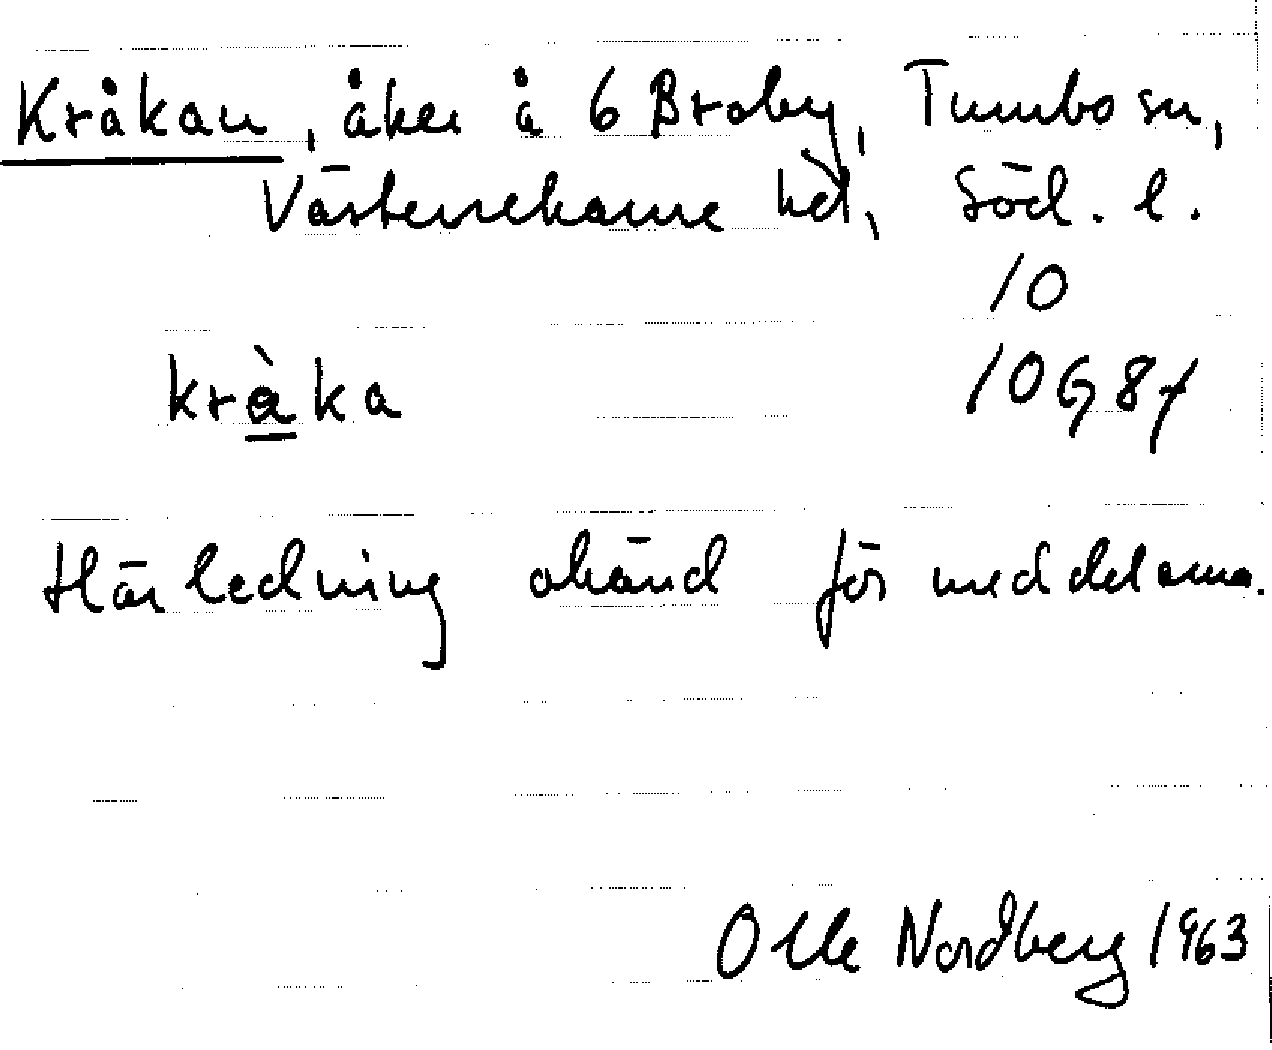 Kråkan, åker å 6 Broby, Tumbo sn,
Västerrekarne hd, Söd. l.
10
kràka
10G8f
Härledning okänd för meddelarna.
Olle Nordberg 1963